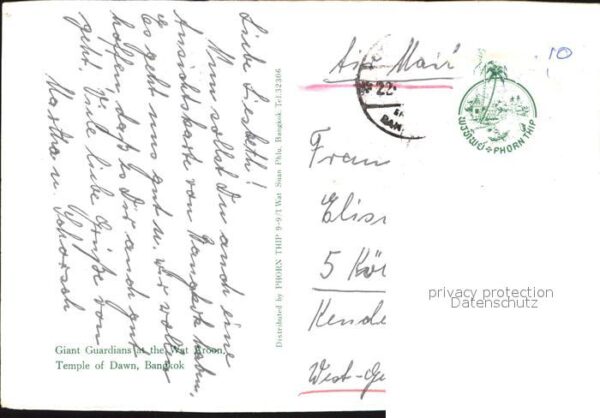 Liebe Liesbeth!
Nun sollst Du auch eine
Ansichtskarte von Bangkok haben,
Es geht uns gut u. wir wollen
hoffen, daß es Dir auch gut
geht. Viele liebe Grüße von
Martha u. Schorsch
Giant Guardians at the Wat Aroon,
Temple of Dawn, Bangkok
Distributed by PHORN THIP 9-9/1 Wat Suan Phlu, Bangkok Tel:32306
Air Mail
22.
BAN
10
พรทิพย์ PHORN THIP
Frau
Elis
5 Köl
West-Ge
privacy protection
Datenschutz